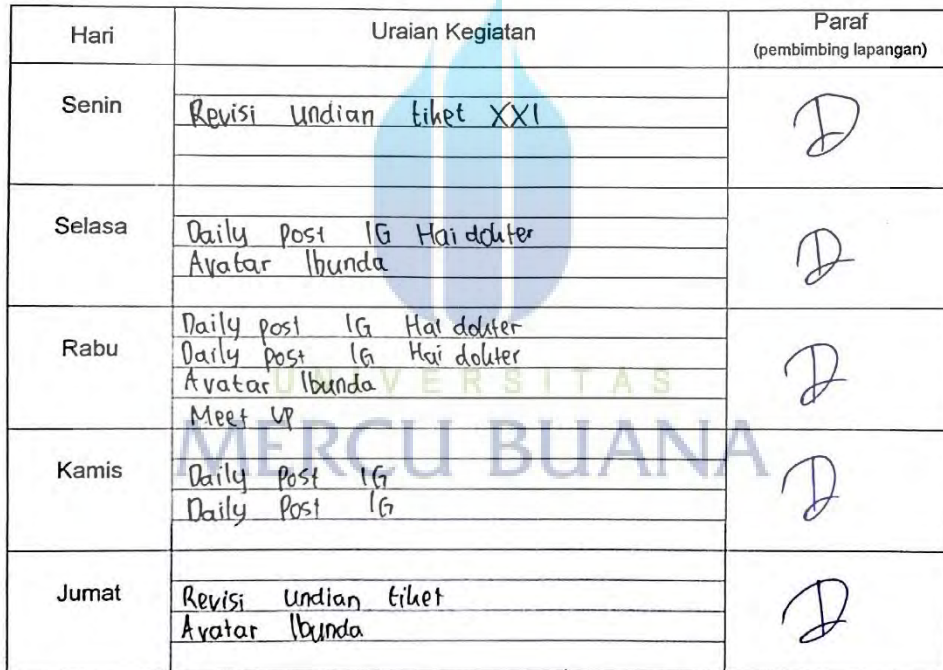 Hari Uraian Kegiatan Paraf
(pembimbing lapangan)
Senin Revisi undian tiket XXI
Selasa Daily post IG Hai dokter
Avatar Ibunda
Rabu Daily post IG Hai dokter
Daily post IG Hai dokter
Avatar Ibunda
Meet up
Kamis Daily Post IG
Daily Post IG
Jumat Revisi undian tiket
Avatar Ibunda
UNIVERSITAS
MERCU BUANA